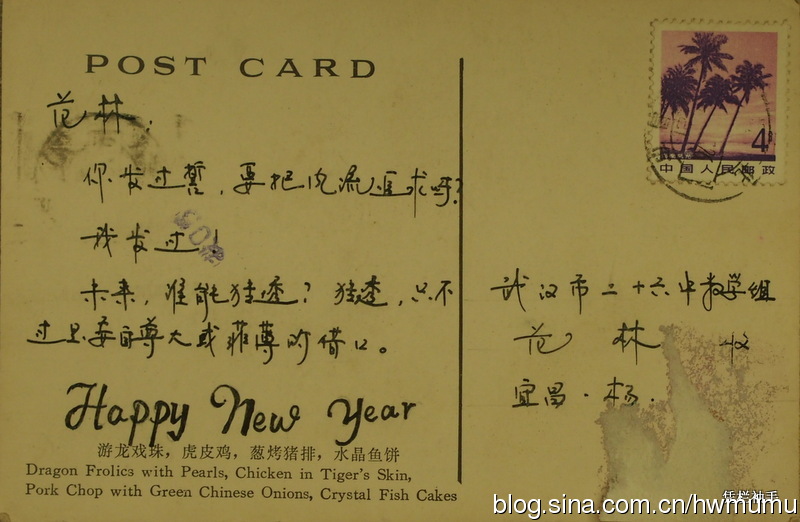 POST CARD
范林：
你发过誓，要把风流追求吗？
我发过！
未来，谁能猜透？猜透，只不
过是妄自尊大或菲薄的借口。
Happy New Year
游龙戏珠，虎皮鸡，葱烤猪排，水晶鱼饼
Dragon Frolics with Pearls, Chicken in Tiger's Skin,
Pork Chop with Green Chinese Onions, Crystal Fish Cakes
4分
中国人民邮政
武汉市二十六中数学组
范 林 收
宜昌·杨
凭栏袖手
blog.sina.com.cn/hwmumu